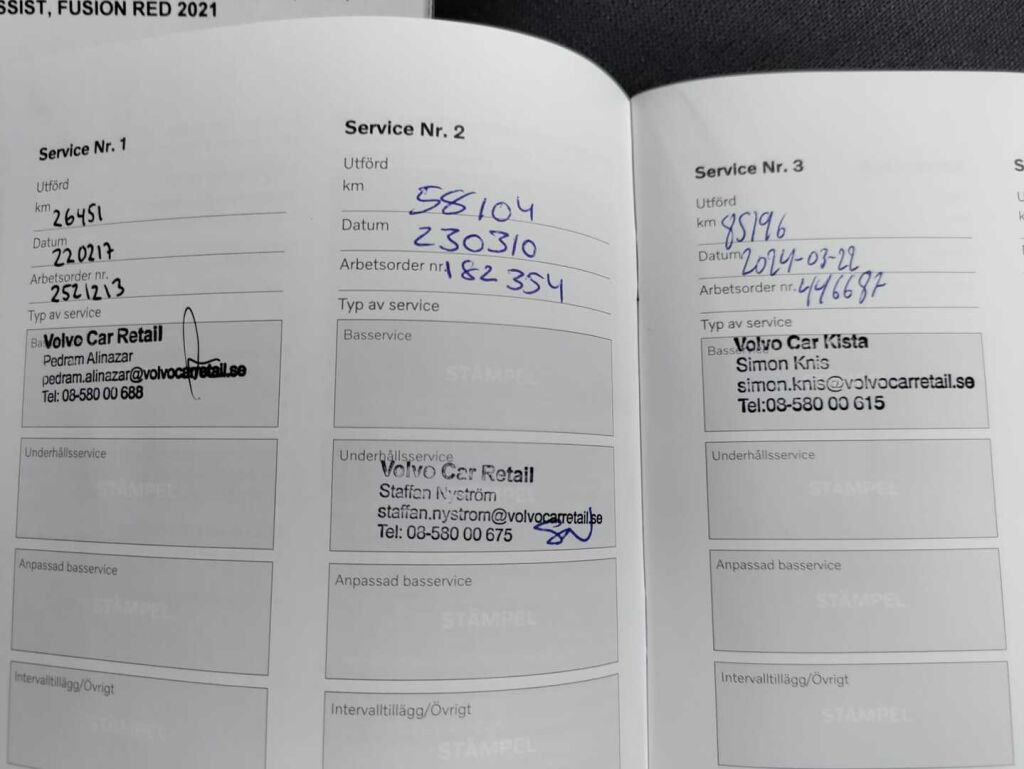 SSIST, FUSION RED 2021
Service Nr. 1
Utförd
km 26451
Datum 220217
Arbetsorder nr. 2521213
Typ av service
Volvo Car Retail
Pedram Alinazar
pedram.alinazar@volvocarretail.se
Tel: 08-580 00 688
Underhållsservice
STÄMPEL
Anpassad basservice
STÄMPEL
Intervalltillägg/Övrigt
STÄMPEL
Service Nr. 2
Utförd
km 58104
Datum 230310
Arbetsorder nr. 182354
Typ av service
Basservice
STÄMPEL
Underhållsservice
Volvo Car Retail
Staffan Nyström
staffan.nystrom@volvocarretail.se
Tel: 08-580 00 675
SN
Anpassad basservice
STÄMPEL
Intervalltillägg/Övrigt
STÄMPEL
Service Nr. 3
Utförd
km 85196
Datum 2024-03-22
Arbetsorder nr. 446687
Typ av service
Basservice
Volvo Car Kista
Simon Knis
simon.knis@volvocarretail.se
Tel:08-580 00 615
Underhållsservice
STÄMPEL
Anpassad basservice
STÄMPEL
Intervalltillägg/Övrigt
STÄMPEL